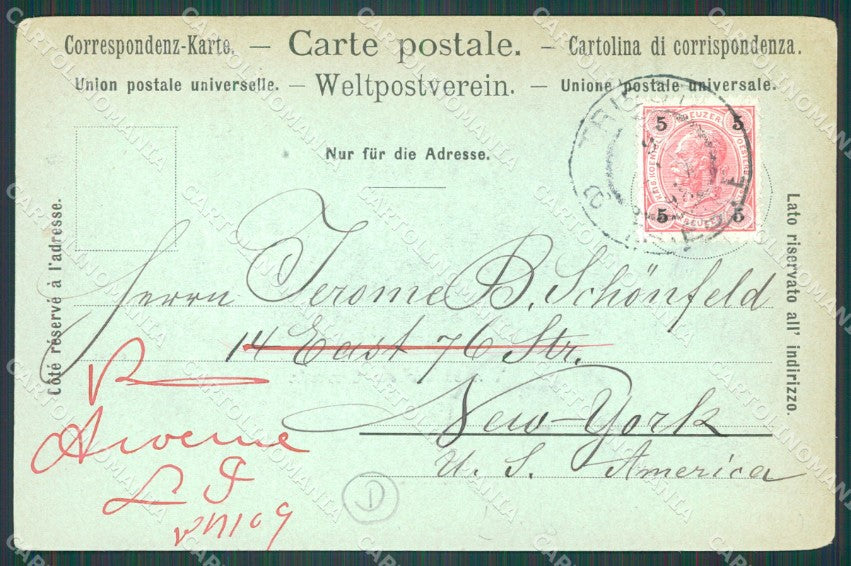 Correspondenz-Karte. — Carte postale. — Cartolina di corrispondenza.
Union postale universelle. — Weltpostverein. — Unione postale universale.
Nur für die Adresse.
5 KREUZER 5
5 5
TRIEST
TRIESTE
Côté réservé à l'adresse.
Lato riservato all' indirizzo.
Herrn Jerome B. Schönfeld
14 East 76 Str.
New-York
U. S. America
Arverne
L I
CARTOLINOMANIA